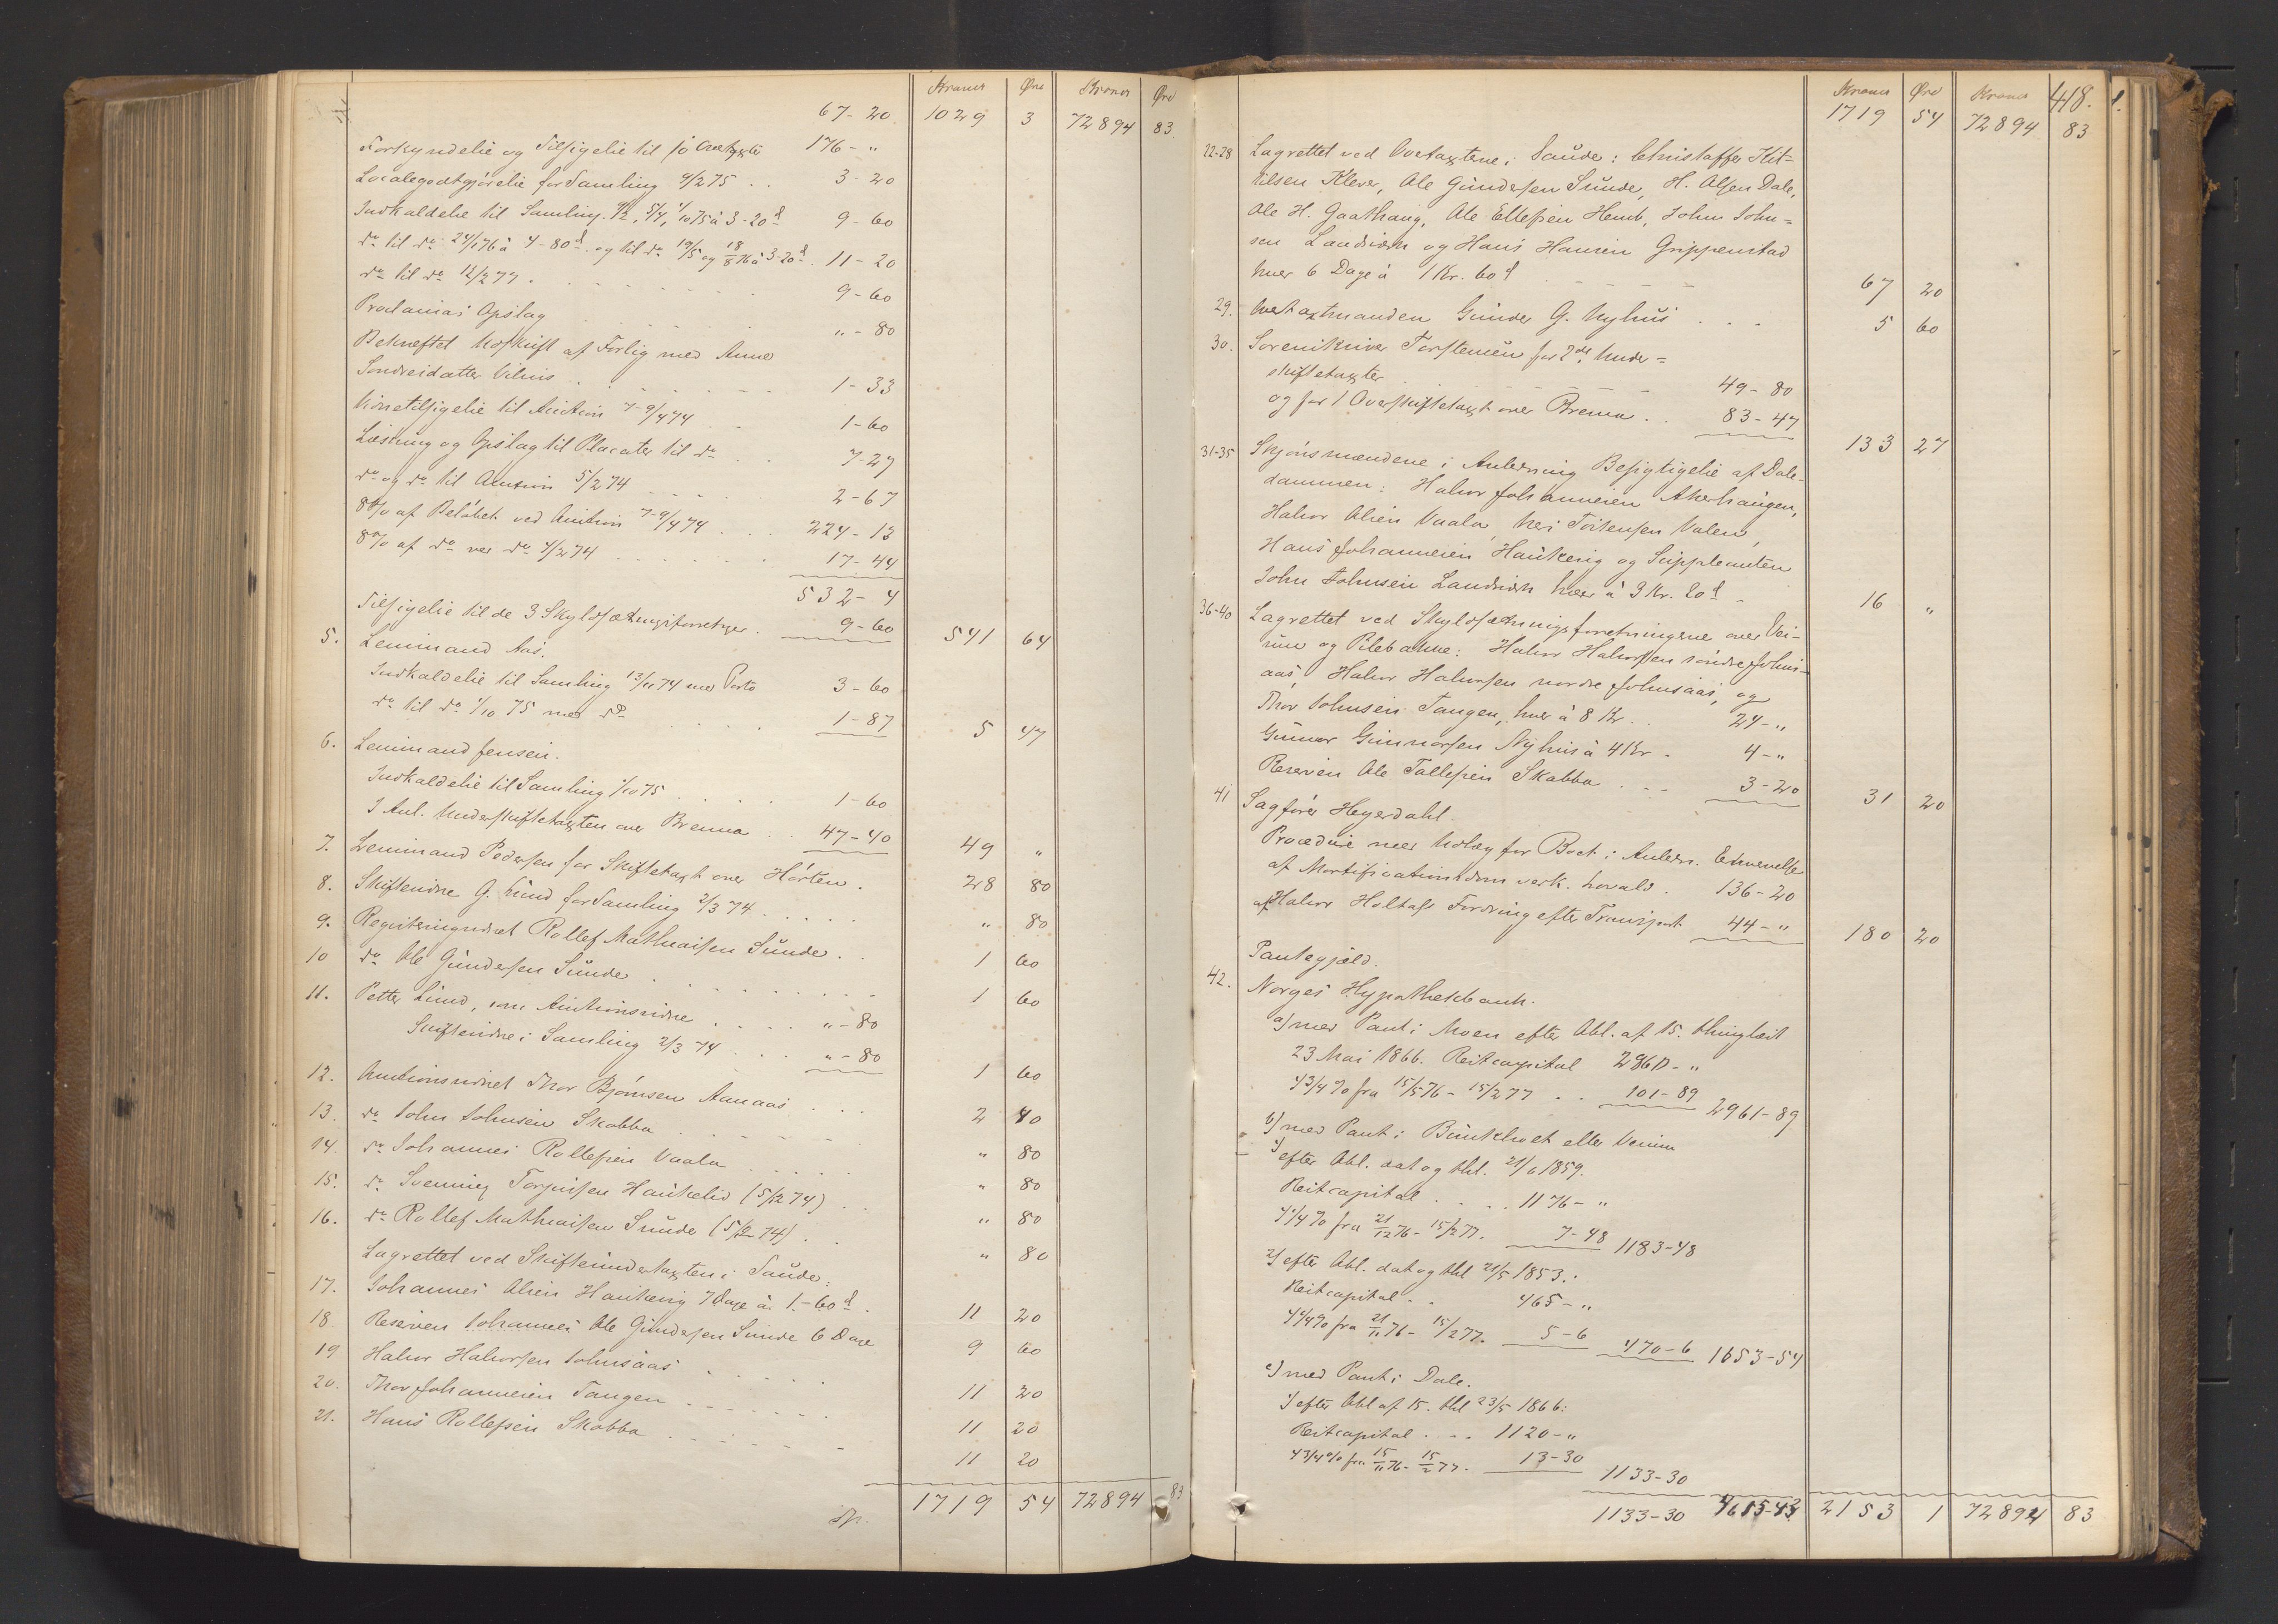 Kroner Øre Kroner Øre
67-20 1029 3 72894 83
Forkyndelse og Tilsigelse til 10 Overtaxter 176-"
Localegodtgjørelse for Samling 9/2 75 . . 3-20
Indkaldelse til Samling 9/2, 5/4, 1/10 75 à 3-20 9-60
do til do 24/1 76 à 4-80 og til do 19/5 og 18/8 76 à 3-20 . 11-20
do til do 12/2 77 . 9-60
Proclamas Opslag "-80
Bekræftet Udskrift af Forlig med Anne
Sondresdatter 1-33
til Auction 7-9/4 74 1-60
Læsning og Opslag til Placater til do 7-27
do og do til Auction 5/2 74 2-67
8% af Beløbet ved Auction 7-9/4 74 . . . 224-13
8% af do ved do 5/2 74 17-44
532-4
Tilsigelse til de 3 Skyldsætningsforretninger . 9-60 541 64
5. Lensmand Aas.
Indkaldelse til Samling 13/11 74 med Porto 3-60
do til do 1/10 75 med do 1-87 5 47
6. Lensmand Jensen.
Indkaldelse til Samling 1/10 75 1-60
I Anl. Underskiftetaxten over Brenna . . 47-40 49 "
7. Lensmand Pedersen for Skiftetaxt over Horten . 28 80
8. Skiftevidne G. Lund for Samling 2/3 74 " 80
9. Registeringsvidnet Rollef Mathiaisen Sunde . . 1 60
10 do Ole Gundersen Sunde 1 60
11. Petter Lund, som Auctionsvidne . . . . "-80
Skiftevidne i Samling 2/3 74 . . . "-80 1 60
12. Auctionsvidnet Thor Bjørnsen Aanaas . . . 2 40
13. do John Johnsen Skobba " 80
14. do Johannes Rollefsen Vaala " 80
15. do Svennung Torjusen Haukelid (5/2 74) . . " 80
16. do Rollef Mathiaisen Sunde (5/2 74) . . " 80
Lagrettet ved Skifteundertaxten i Saude:
17. Johannes Olsen Haukerig 7 Dage à 1-60 . 11 20
18. Reserven Johannes Ole Gundersen Sunde 6 Dage 9 60
19 Halvor Halvorsen Johnsaas 11 20
20. Thor Johannesen Tangen 11 20
21. Hans Rollefsen Skobba 11 20
1719 54 72894 83
Kroner Øre Kroner 418.
1719 54 72894 83
22-28 Lagrettet ved Overtaxterne i Saude: Christoffer Kit=
tilsen Klever, Ole Gundersen Sunde, H. Olsen Dale,
Ole H. Gaashaug, Ole Ellefsen Hemb, John John=
sen Landsverk og Hans Hansen Grippenstad
hver 6 Dage à 1 Kr. 60 67 20
29. Overtaxtmanden Gunder G. Nyhus . . . 5 60
30. Sorenskriver Torstensen for 2de Under=
skiftetaxter 49-80
og for 1 Overskiftetaxt over Brenna . . 83-47 133 27
31-35 Skjønsmændene i Anledning Besigtigelse af Dale-
dammen: Halvor Johannesen Akerhaugen,
Halvor Olsen Vaala, Torstensen Valen,
Hans Johannesen Haukerig og Suppleanten
John Johnsen Landsverk hver à 3 Kr. 20 16 "
36-40 Lagrettet ved Skyldsætningsforretningerne over
og Pilebakke: Halvor Halvorsen søndre Johns-
aas, Halvor Halvorsen nordre Johnsaas, og
Thor Johnsen Tangen, hver à 8 Kr . . 24-"
Gunnar Gunnarsen Nyhus à 4 Kr . 4-"
Reserven Ole Tollefsen Skobba . . . 3-20 31 20
41 Sagfører Heyerdahl.
Procedure med Udlæg for Boet i Anledn. Erhvervelse
af Mortificationsdom 136-20
af Halvor Holtass Fordring efter Transport 44-" 180 20
Pantegjæld.
42. Norges Hypothekbank.
a) med Pant i Moen efter Obl. af 15. thinglæst
23 Mai 1866. Restcapital 2860-"
4 3/4 % fra 15/5 76 - 15/2 77 . . 101-89 2961-89
b) med Pant i Bunkholt eller
1) efter Obl. dat og thl. 21/6 1859.
Restcapital . . . . 1176-"
4 1/4 % fra 21/12 76 - 15/2 77. 7-48 1183-48
2) efter Obl. dat og thl 21/5 1853.
Restcapital . . 465-"
4 1/4 % fra 21/11 76 - 15/2 77. 5-6 470-6 1653-54
c) med Pant i Dale.
1) efter Obl af 15. thl 23/5 1866:
Restcapital . . . 1120-"
4 3/4 % fra 15/11 76 - 15/2 77. 13-30 1133-30
1133-30 4615-43 2153 1 72894 83